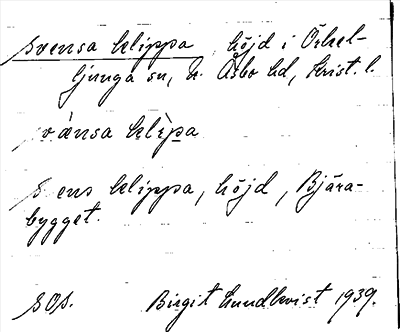 Svensa klippa, höjd i Örkel-
ljunga sn, N. Åsbo hd, Krist. l.
svänsa klìpa
S ens klippa, höjd, Bjära-
bygget.
SOS. Birgit Lundkvist 1939.